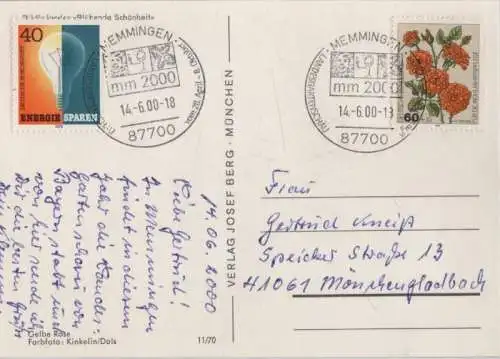 40
DEUTSCHE BUNDESPOST
ENERGIE SPAREN
MEMMINGEN
mm 2000
14.-6.00-18
87700
MEMMINGEN
mm 2000
14.-6.00-18
87700
60
VERLAG JOSEF BERG · MÜNCHEN
14.06.2000
Liebe Gertrud!
In Memmingen
findet in diesem
Jahr die Landes-
gartenschau von
Bayern statt und
von hier sende ich
Dir die besten Grüße
Frau
Gertrud Kneiß
Speicker Straße 13
41061 Mönchengladbach
Gelbe Rose
Farbfoto: Kinkelin/Dols
11/70